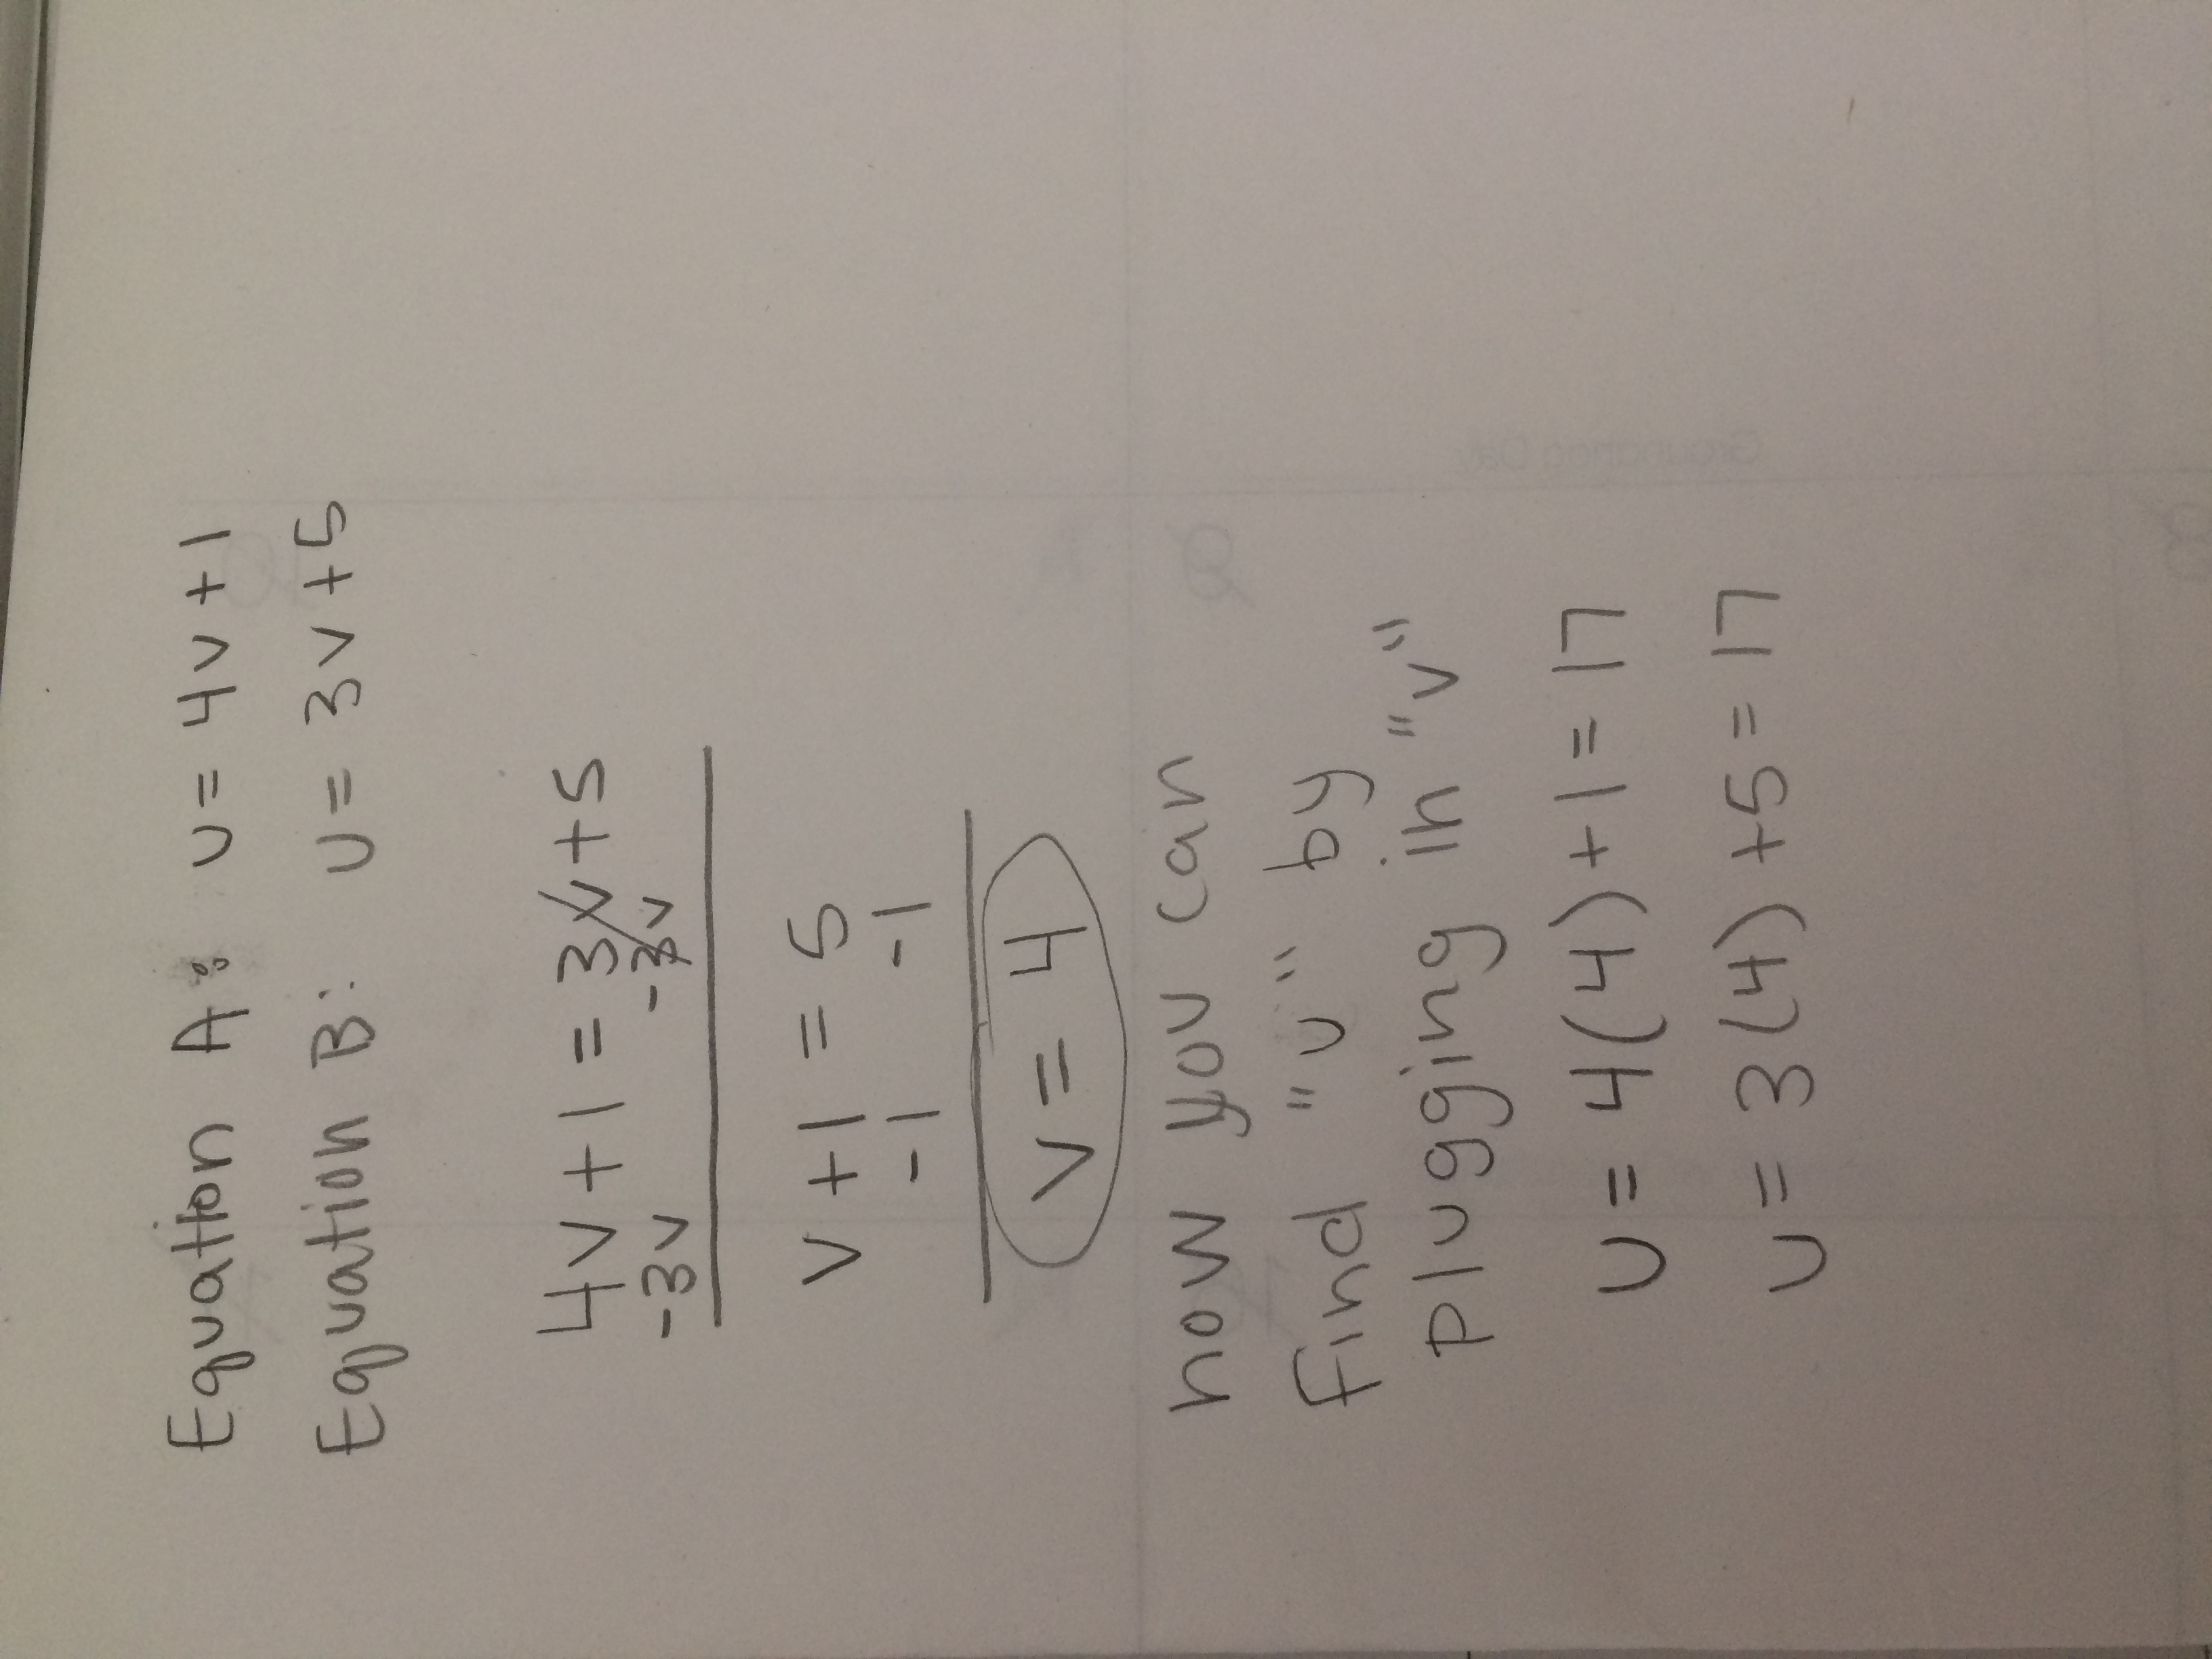 Equation A: u = 4v + 1
Equation B: u = 3v + 5
4v + 1 = 3v + 5
-3v -3v
v + 1 = 5
-1 -1
v = 4
now you can
find "u" by
plugging in "v"
u = 4(4) + 1 = 17
u = 3(4) + 5 = 17
Groundhog Day